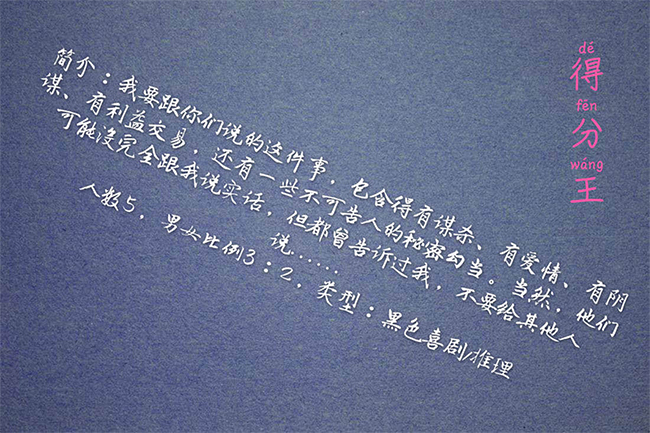 dé
得
fēn
分
wáng
王
简介：我要跟你们说的这件事，包含得有谋杀、有爱情、有阴
谋、有利益交易，还有一些不可告人的秘密勾当。当然，他们
可能没完全跟我说实话，但都曾告诉过我，不要给其他人
说……
人数5，男女比例3：2，类型：黑色喜剧/推理